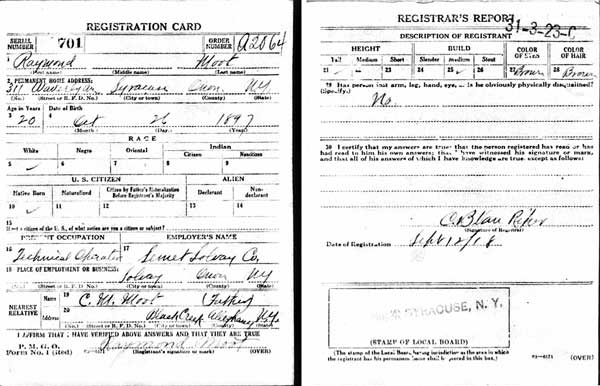 REGISTRATION CARD
SERIAL NUMBER 701 ORDER NUMBER A2064
1 Raymond Moot
(First name) (Middle name) (Last name)
2 PERMANENT HOME ADDRESS:
311 Syracuse Onon NY
(No.) (Street or R. F. D. No.) (City or town) (County) (State)
Age in Years Date of Birth
3 20 4 Oct 26 1897
(Month) (Day) (Year)
RACE
White Negro Oriental Indian
Citizen Noncitizen
5 ✓ 6 7 8 9
U. S. CITIZEN ALIEN
Native Born Naturalized Citizen by Father's Naturalization Before Registrant's Majority Declarant Non-declarant
10 ✓ 11 12 13 14
15
If not a citizen of the U. S., of what nation are you a citizen or subject?
PRESENT OCCUPATION EMPLOYER'S NAME
16 Technical Operator 17 Semet Solvay Co.
18 PLACE OF EMPLOYMENT OR BUSINESS:
Solvay Onon NY
(No.) (Street or R. F. D. No.) (City or town) (County) (State)
NEAREST RELATIVE
Name 19 C. M. Moot (Father)
Address 20 Black Creek Allegany N.Y.
(No.) (Street or R. F. D. No.) (City or town) (County) (State)
I AFFIRM THAT I HAVE VERIFIED ABOVE ANSWERS AND THAT THEY ARE TRUE
P. M. G. O.
Form No. 1 (Red) Raymond Moot
(Registrant's signature or mark) (OVER)
REGISTRAR'S REPORT
31-3-23-C
DESCRIPTION OF REGISTRANT
HEIGHT BUILD COLOR OF EYES COLOR OF HAIR
Tall Medium Short Slender Medium Stout
21 22 23 24 25 ✓ 26 27 Brown 28 Brown
29 Has person lost arm, leg, hand, eye, or is he obviously physically disqualified?
(Specify.)
No.
30 I certify that my answers are true; that the person registered has read or has
had read to him his own answers; that I have witnessed his signature or mark,
and that all of his answers of which I have knowledge are true, except as follows:
(Signature of Registrar)
Date of Registration Sept 12/18
SYRACUSE, N. Y.
(STAMP OF LOCAL BOARD)
(The stamp of the Local Board having jurisdiction of the area in which
the registrant has his permanent home shall be placed in this box.)
(OVER)